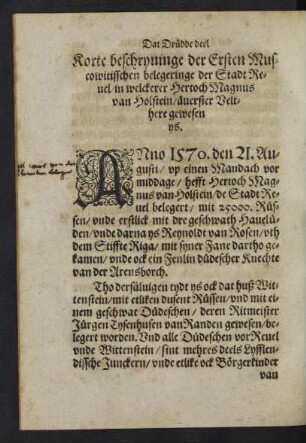 Dat Drüdde deel
Korte beschryuinge der Ersten Mus-
cowitisschen belegeringe der Stadt Re-
uel in welckerer Hertoch Magnus
van Holstein/äuerster Velt-
here gewesen
ys.
ANno 1570. den 21. Au-
gusti/ vp einen Mandach vor
middage/ hefft Hertoch Mag-
nus van Holstein/de Stadt Re-
uel belegert/ mit 25000. Rüs-
sen/ vnde erstlick mit dre geschwath Haueli-
den/vnde darna ys Reynoldt van Rosen/vth
dem Stiffte Riga/ mit syner Fane dartho ge-
kamen/ vnde ock ein Fenlin düdescher Knechte
van der Arensborch.
Tho dersüluigen tydt ys ock dat huß Wit-
tenstein/mit etliken dusent Rüssen/vnd mit ei-
nem geschwat Düdeschen/ deren Ritmeister
Jürgen Tysenhusen van Randen gewesen/be-
legert worden. Vnd alle Düdeschen vor Reuel
vnde Wittenstein/ sint mehres deels Lyfflen-
dissche Junckern/ vnde etlike ock Börgerkinder
van